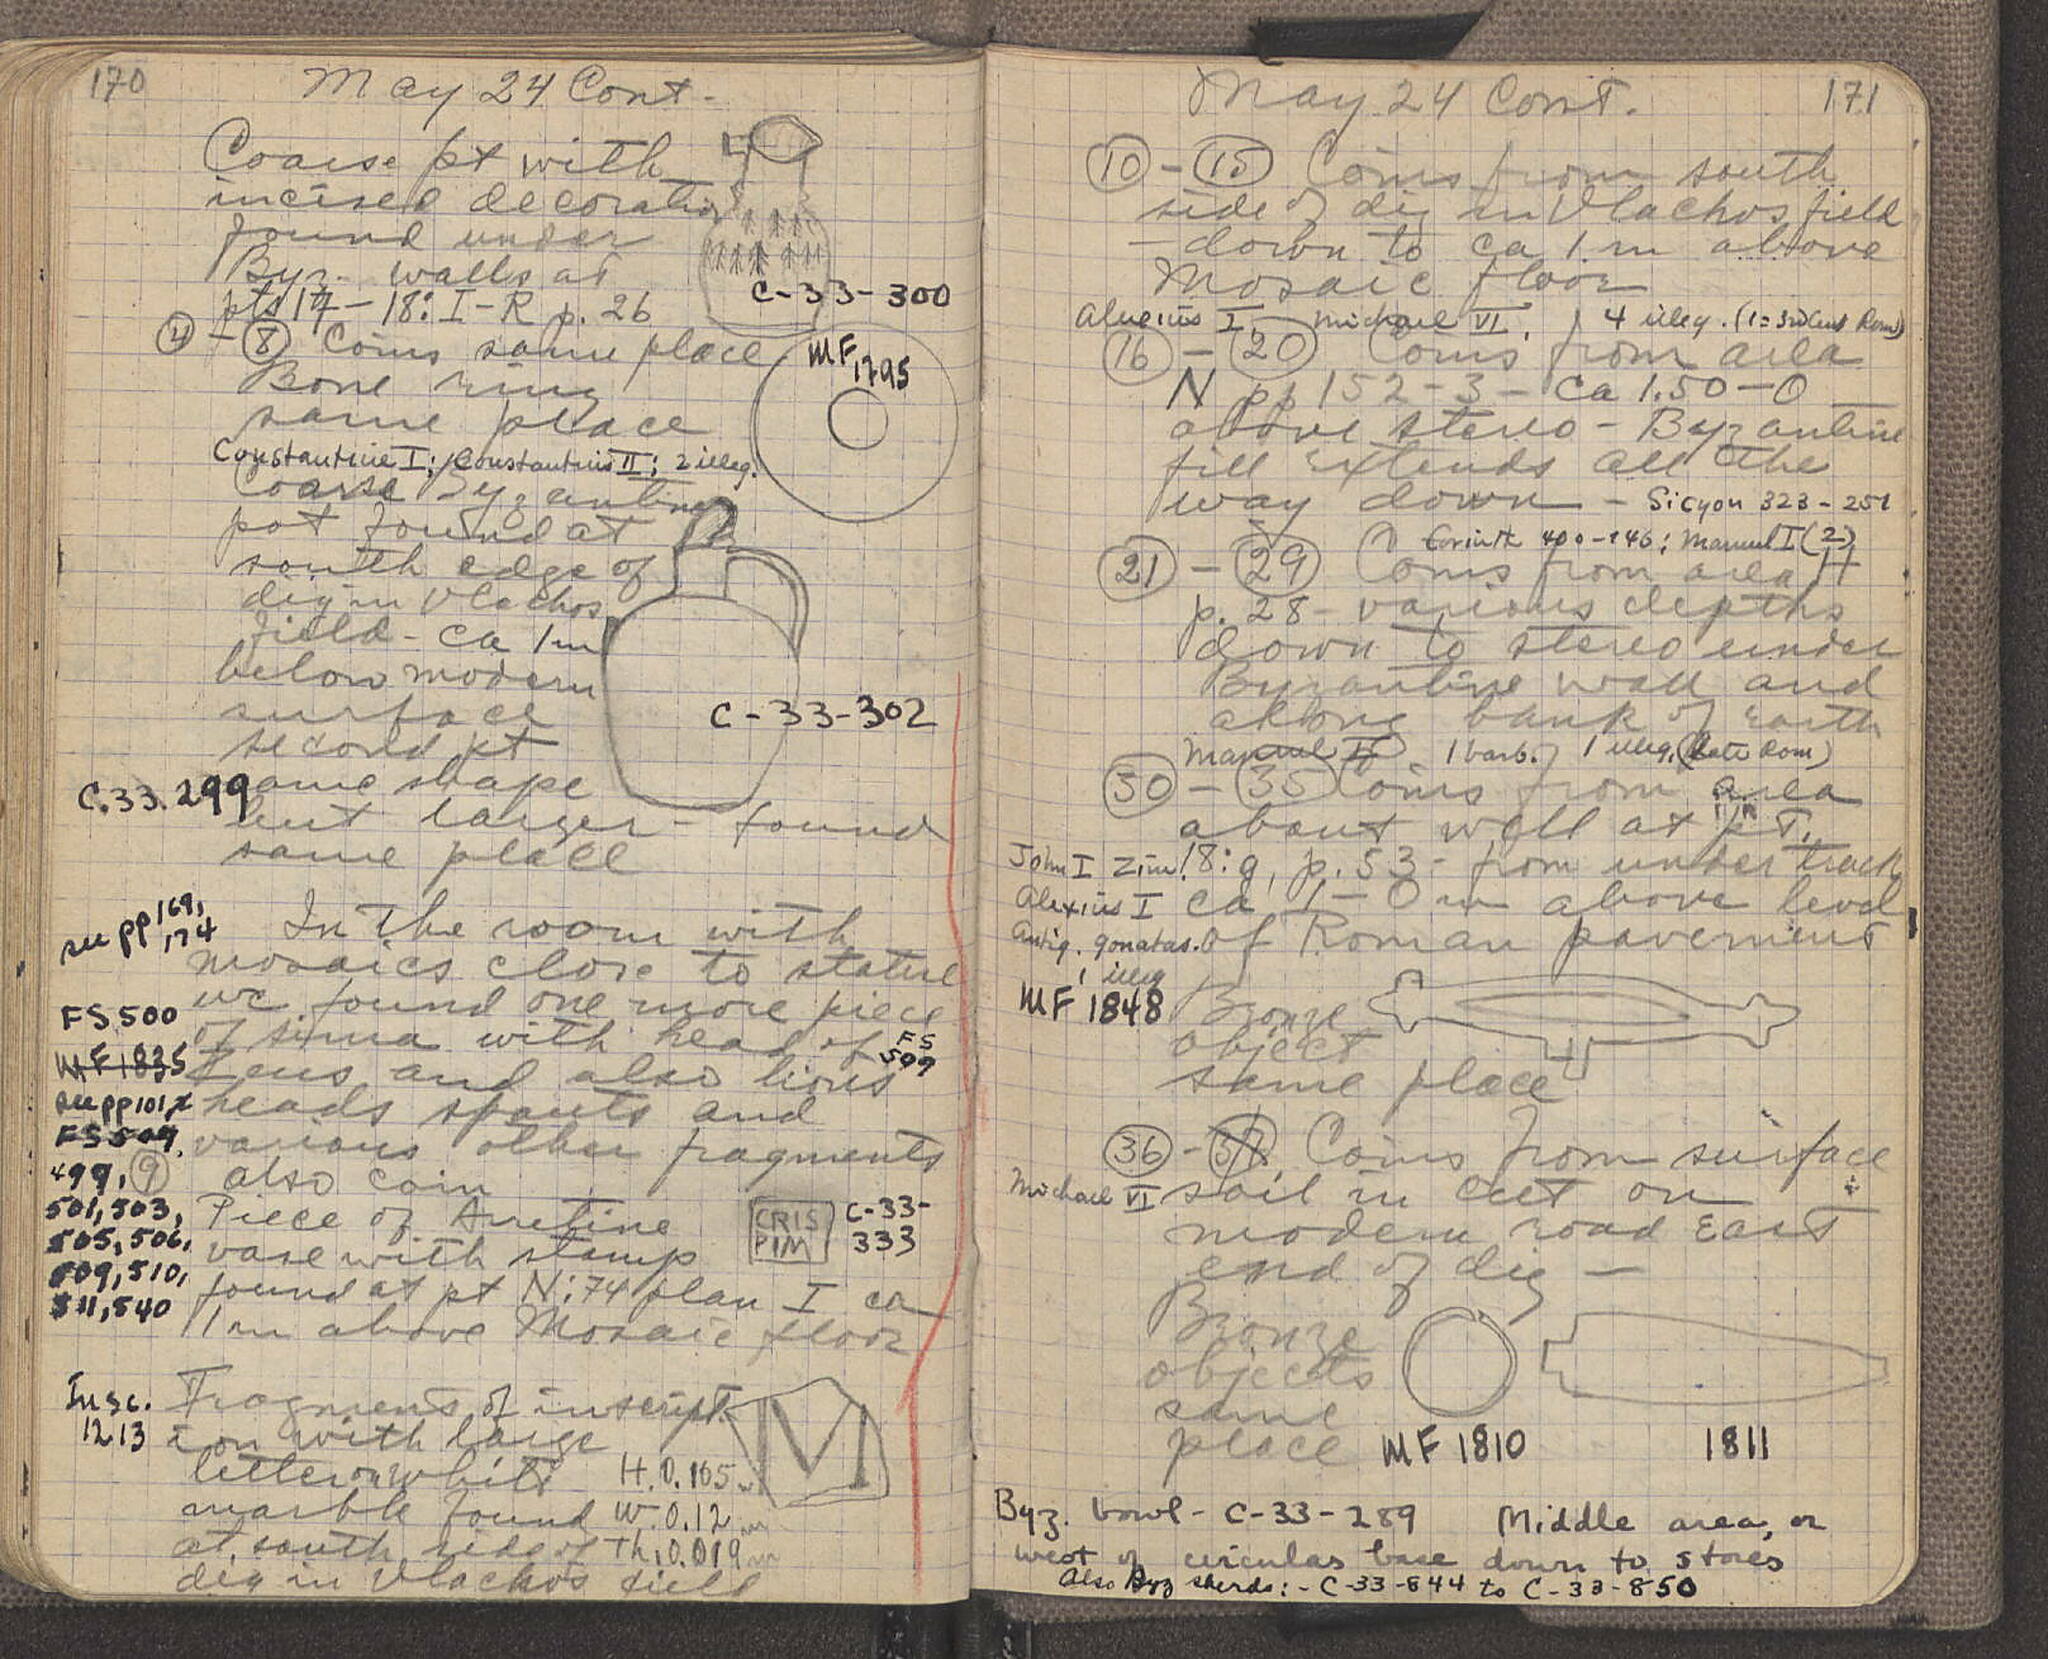 170
May 24 Cont.
Coarse pt with
incised decoration
found under
Byz. walls at
pts 17-18: I-R p. 26
C-33-300
④ - ⑧ Coins same place
Bone ring
same place
MF 1795
Constantine I; Constantius II; 2 illeg.
Coarse Byzantine
pot found at
south edge of
dig in Vlachos
field - ca 1m
below modern
surface
second pt
C.33.299 same shape
but larger - found
same place
C-33-302
see pp 169,
174
In the room with
mosaics close to statue
we found one more piece
of sima with head of
Zeus and also lions
heads spouts and
various other fragments
also coin ⑨
FS 509
FS 500
MF 1835
see pp 101
FS 507,
499,
501, 503,
505, 506,
509, 510,
511, 540
Piece of Arretine
vase with stamp
found at pt N:74 plan I ca
1m above Mosaic floor
CRIS
PIM
C-33-
333
Insc.
1213
Fragment of inscript
ion with large
letter on white
marble found
at south side of
dig in Vlachos field
H. 0.165 m
W. 0.12 m
Th. 0.019 m
M
May 24 Cont.
171
⑩ - ⑮ Coins from south
side of dig in Vlachos field
- down to ca 1 m above
Mosaic floor
Alexius I, Michael VI, 4 illeg. (1=3rd Cent Rom)
⑯ - ⑳ Coins from area
N pp 152-3 - ca 1.50-0
above stereo - Byzantine
fill extends all the
way down - Sicyon 323-251
Corinth 400-146; Manuel I (2)
㉑ - ㉙ Coins from area H
p. 28 - various depths
down to stereo under
Byzantine wall and
along bank of earth
Manuel I, 1 barb. 1 illeg. (Late Rom)
㉚ - ㉟ Coins from area
about well at pt.
18:9, p. 53 - from under track
ca 1-0 m above level
of Roman pavement
John I Zim.
Alexius I
Antig. gonatas.
1 illeg
MF 1848
Bronze
object
same place
㊱ - ㊲ Coins from surface
Michael VI soil in cut on
modern road East
end of dig -
Bronze
objects
same
place
MF 1810
1811
Byz. bowl - C-33-289 Middle area, or
west of circular base down to stores
Also Byz sherds: - C-33-844 to C-33-850